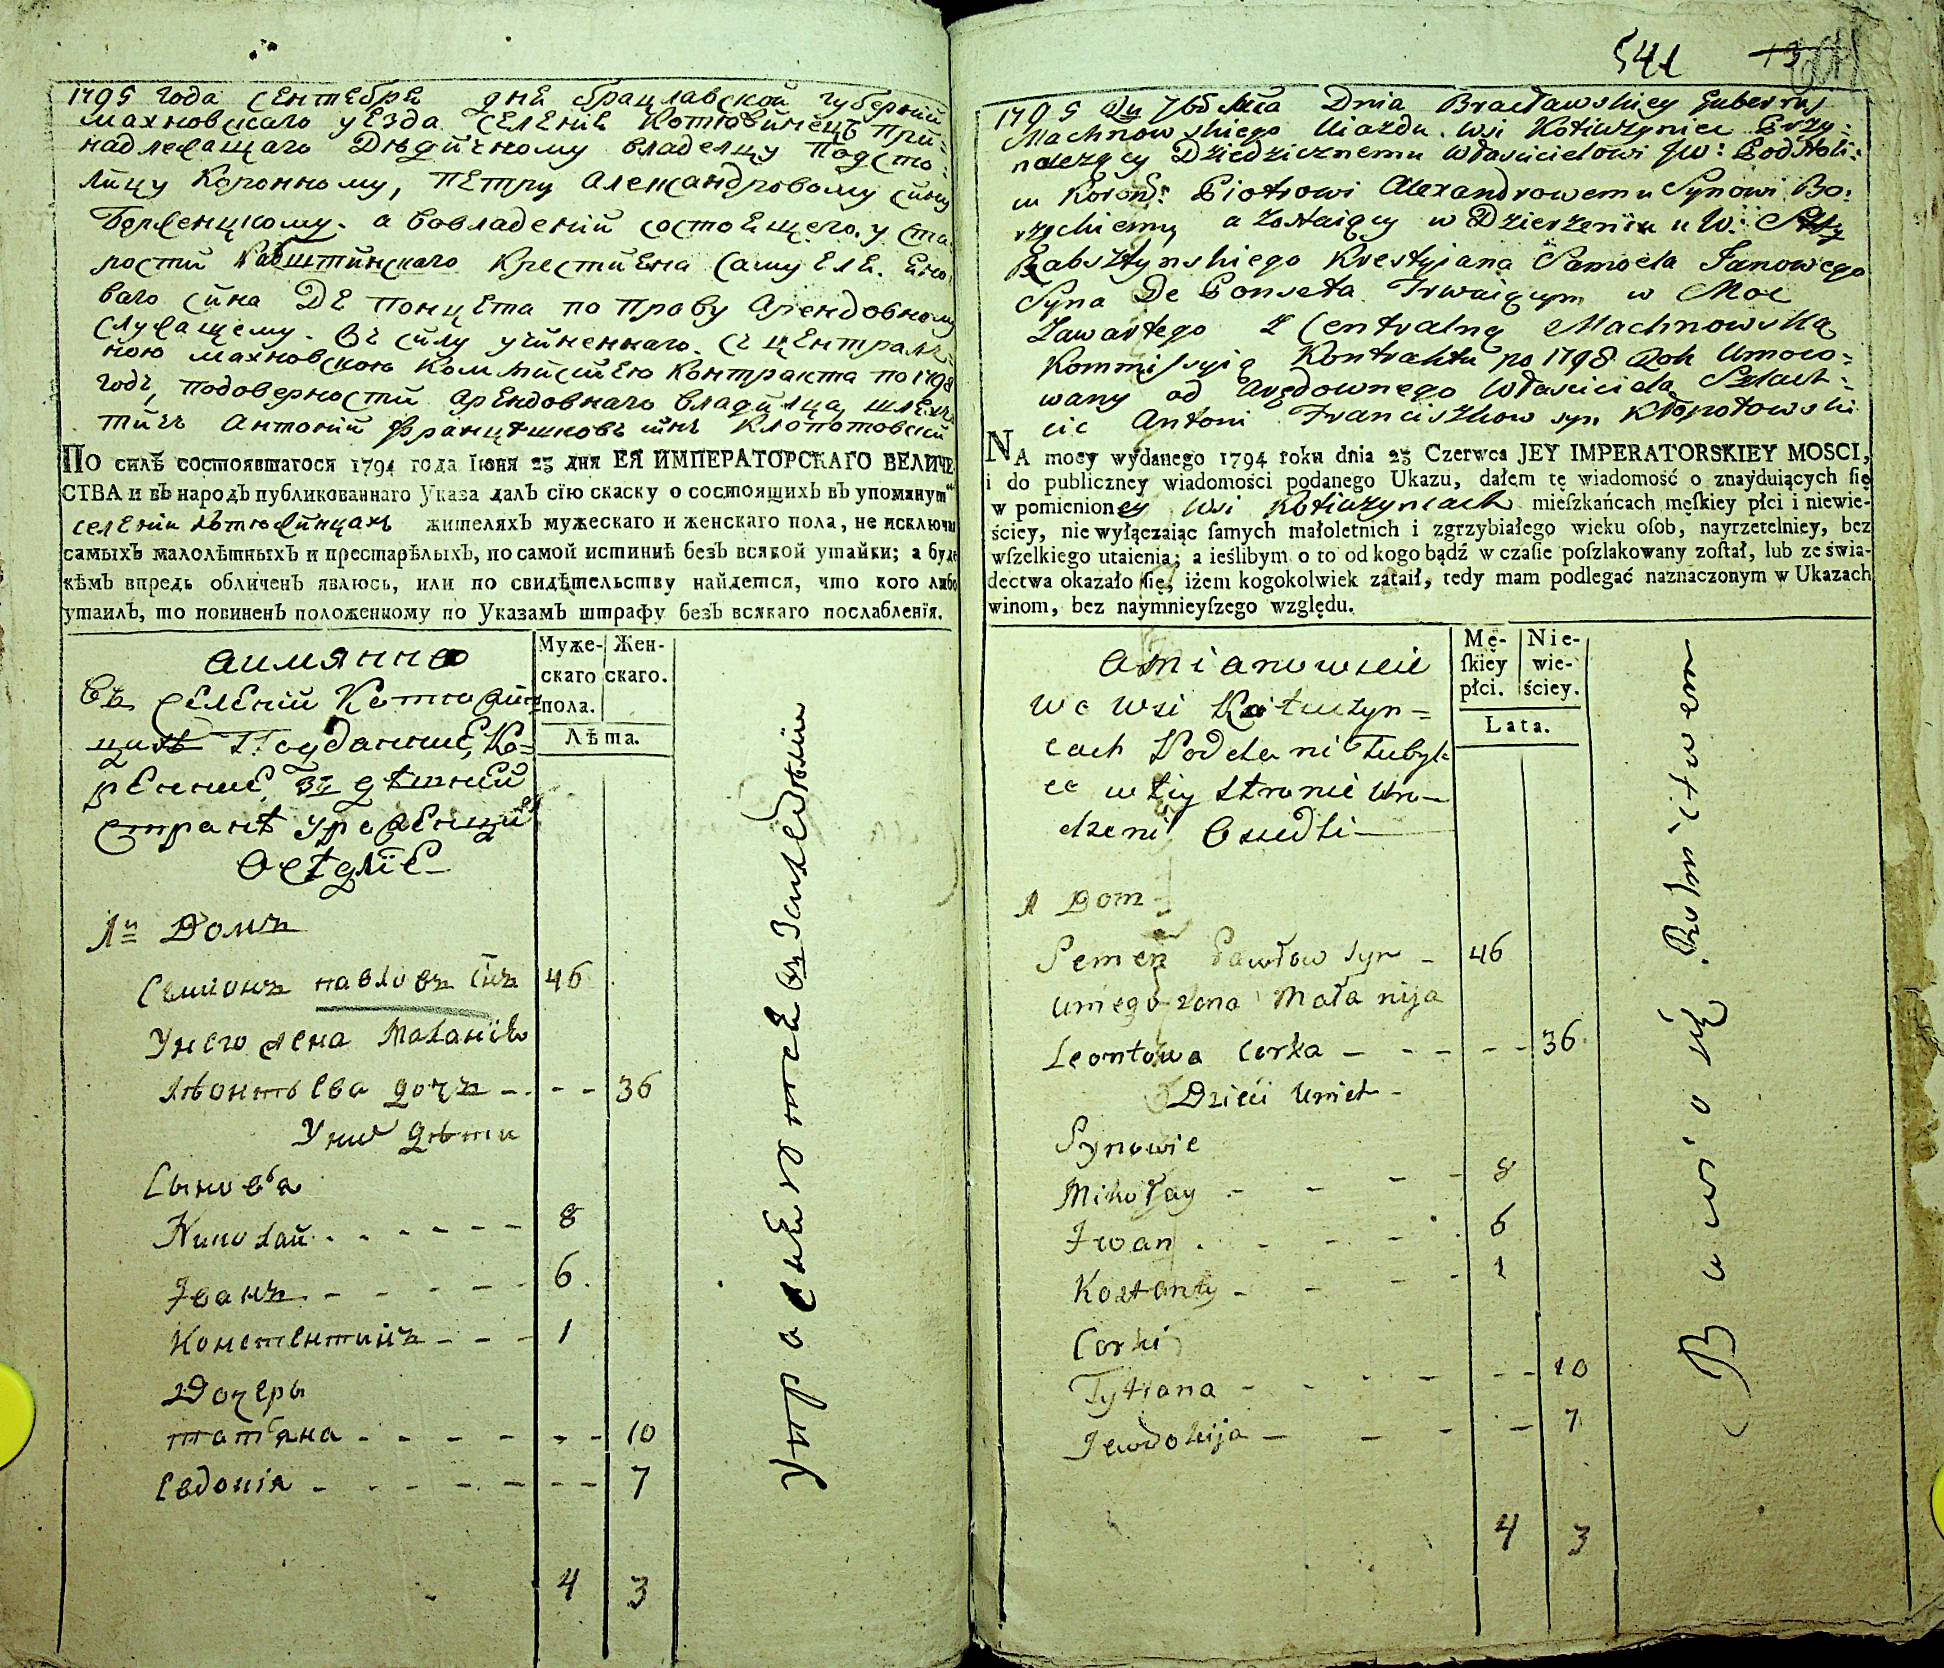 1795 года Сентебре дне Брацлавской губерний
Махновскаго уезда Селение Котювинецъ при-
надлежащаго Дедичному владелцу Подсто-
лицу Коронному, Петру Александровому сину
Борженцкому. а вовладений состоещего у ста-
рости Рабштинскаго Крестиена Самуеле. Ено-
ваго сина Де Понцета по праву Арендовному
служащему. Въ силу учиненнаго. съ централ-
ною Махновскою Коммисиею Контракта по 1798
годъ, подоверности Арендовнаго владилца шлех-
тичъ Антоний Францишковъ синъ Клопотовский
По силѣ состоявшагося 1794 года Іюня 23 дня ЕЯ ИМПЕРАТОРСКАГО ВЕЛИЧЕ-
СТВА и въ народъ публикованнаго Указа далъ сїю скаску о состоящихъ въ упомянут
селении Котюжинцахъ жителяхъ мужескаго и женскаго пола, не исключи
самыхъ малолѣтныхъ и престарѣлыхъ, по самой истиннѣ безъ всякой утайки; а буде
кѣмъ впредь обличенъ явлюсь, или по свидѣтельству найдется, что кого либо
утаилъ, то повиненъ положенному по Указамъ штрафу безъ всякаго послабленїя.
аимянно
Въ Селений Котюжин-
цахъ Подданние, Ко-
ренние въ детней
стране урожденци
Оседлїе
Муже-
скаго
пола.
Жен-
скаго.
Лѣта.
1й Домъ
Семионъ павловъ Синъ 46
Унего жена Маланїя
Леонтьева дочъ - - - 36
Уних дети
Сыновья
Николай - - - - - 8
Іванъ - - - - - 6
Константинъ - - - 1
Дочеры
татяна - - - - - - - 10
Евдокія - - - - - - - 7
4 3
541 13
1795 Ru 7bo Mca Dnia Bracławskiey Guberny
Machnowskiego Uiazdu. wsi Kotiuzyniec Przy-
nalezący Dziedzicznemu Właścicielowi JW: Podstoli:
u Koron: Piotrowi Alexandrowemu Synowi Bo:
rzęckiemu a Zostaiący w Dzierzeniu u W:
Rabsztynskiego Krestyiana Samoela Janowego
Syna De Ponseta Trwaiącym w Moc
Zawartego z Centralną Machnowską
Kommissyią Kontraktu po 1798 Rok Umoco-
wany od Arędownego Właściciela Szlach-
cic Antoni Franciszkow syn Kłopotowski
NA mocy wydanego 1794 roku dnia 23 Czerwca JEY IMPERATORSKIEY MOSCI,
i do publiczney wiadomości podanego Ukazu, dałem tę wiadomość o znayduiących się
w pomienioney Wsi Kotiuzyncach mieſzkańcach męſkiey płci i niewie-
ściey, nie wyłączaiąc ſamych małoletnich i zgrzybiałego wieku oſob, nayrzetelniey, bez
wſzelkiego utaienia; a ieślibym o to od kogo bądź w czaſie poſzlakowany zoſtał, lub ze świa-
dectwa okazało ſię, iżem kogokolwiek zataił, tedy mam podlegać naznaczonym w Ukazach
winom, bez naymnieyſzego względu.
a mianowicie
we wsi Kotiuzyn-
cach Poddani Tubyl-
ce w tey stronie Uro-
dzeni Osiedli
Mę-
ſkiey
płci.
Nie-
wie-
ściey.
Lata.
1 Dom
Semen Pawłow syn - 46
u niego zona Małanija
Leontowa Corka - - - - - 36
Dzieci Unich -
Synowie
Mikołay - - - - 8
Iwan - - - - 6
Kostanty - - - 1
Corki
Tytiana - - - - - - 10
Jewdokija - - - - 7
4 3